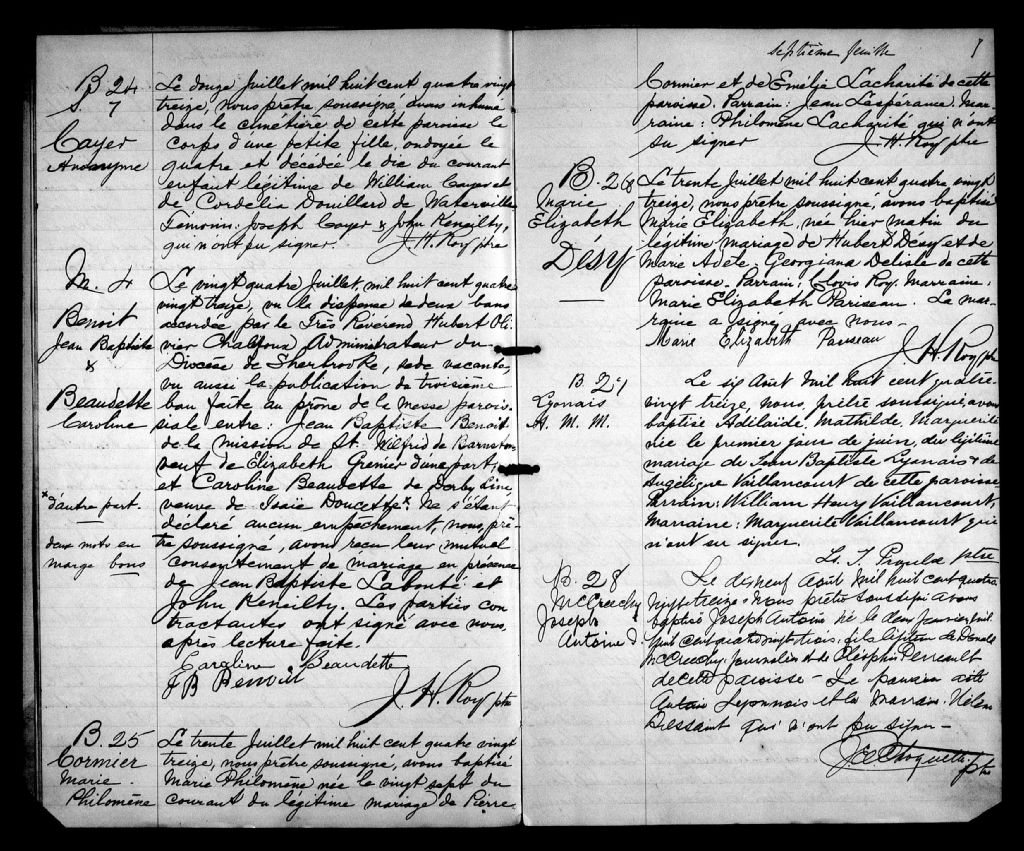 B 24
S. 7
Cayer
Anonyme
Le douze Juillet mil huit cent quatre vingt
treize, nous prêtre soussigné, avons inhumé
dans le cimétière de cette paroisse le
corps d'une petite fille, ondoyée le
quatre et décédée le dix du courant
enfant légitime de William Cayer et
de Cordelia Douillard de Waterville
Témoins: Joseph Cayer & John Keneilty,
qui n'ont su signer. J. H. Roy ptre
M. 4
Benoit
Jean Baptiste
&
Beaudette
Caroline
x
d'autre part.
deux mots en
marge bons
Le vingt quatre Juillet, mil huit cent quatre
vingt treize, vu la dispense de deux bans
accordée par le Très Révérend Hubert Oli-
vier Chalifoux Administrateur du
Diocèse de Sherbrooke, sede vacante,
vu aussi la publication du troisième
ban faite au prône de la messe parois-
siale entre: Jean Baptiste Benoit
de la mission de St. Wilfrid de Barnston
veuf de Elizabeth Grenier d'une part;
et Caroline Beaudette de Derby Line,
veuve de Isaïe Doucette x. Ne s'étant
déclaré aucun empêchement, nous, prê-
tre soussigné, avons reçu leur mutuel
consentement de mariage en présence
de Jean Baptiste Labonté et
John Keneilty. Les parties con
tractantes ont signé avec nous
après lecture faite.
Caroline Beaudette
J B Benoit
J. H. Roy ptre
B. 25
Cormier
Marie
Philomène
Le trente Juillet mil huit cent quatre vingt
treize, nous prêtre soussigné, avons baptisé
Marie Philomène née le vingt sept du
courant du légitime mariage de Pierre
septième feuille
Cormier et de Emélie Lacharité de cette
paroisse. Parrain: Jean Lespérance. Mar-
raine: Philomène Lacharité qui n'ont
su signer J. H. Roy ptre
B. 26
Marie
Elizabeth
Désy
Le trente Juillet mil huit cent quatre vingt
treize, nous prêtre soussigné, avons baptisé
Marie Elizabeth, née hier matin du
légitime mariage de Hubert Désy et de
Marie Adele, Georgiana Delisle de cette
paroisse. Parrain; Clovis Roy. Marraine,
Marie Elizabeth Pariseau. La mar-
raine a signé avec nous-
Marie Elizabeth Pariseau
J. H. Roy ptre
B. 27
Lyonais
A. M. M.
Le six Août mil huit cent quatre-
vingt treize, nous, prêtre soussigné, avons
baptisé Adélaïde, Mathilde, Marguerite
née le premier jour de juin, du légitime
mariage de Jean Baptiste Lyonais & de
Angélique Vaillancourt de cette paroisse
Parrain: William Henry Vaillancourt,
Marraine: Marguerite Vaillancourt qui
n'ont su signer.
ptre
B. 28
McCreedy
Joseph
Antoine
Le dix neuf Août mil huit cent quatre
vingt treize Nous prêtre soussigné avons
baptisé Joseph Antoine né le deux Janvier mil
huit cent quatre vingt trois, fils légitime de Donald
McCreedy, journalier et de Cléophie Perreault
de cette paroisse - Le parrain a été
Antoine Leyonnois et la Marraine Hélène
Dessaint qui n'ont pu signer -
J E Choquette ptre